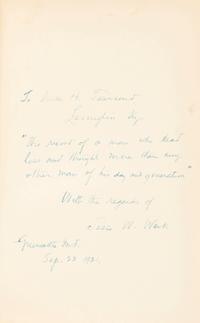 To Wm. H. Townsend
Lexington Ky.
"The record of a man who read
less and thought more than any
other man of his day and generation"
With the regards of
Jesse W. Weik
Greencastle Ind.
Sep. 22 1921.